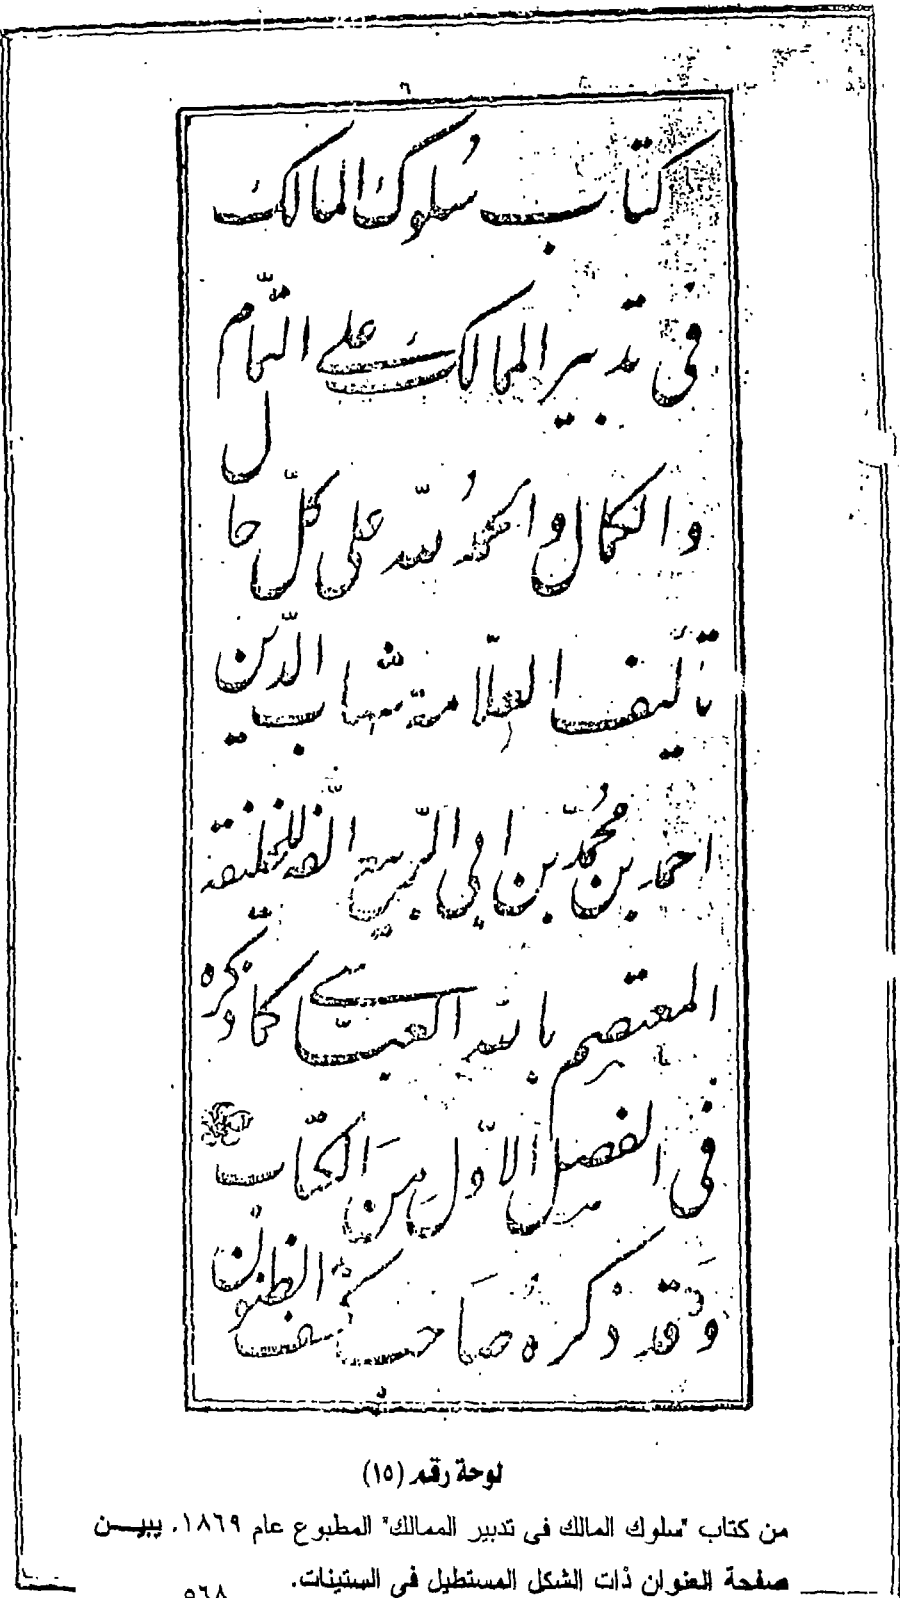 كتاب سُلوك المالك
فى تدبير الممالك على التمام
والكمال والحمدُ للّه على كلّ حال
تأليف العلّامة شهاب الدّين
احمد بن محُمّد بن ابي الرّبيع الّفه للخليفة
المعتصم باللّه العبّاسي كما ذكره
فى الفصل الاوّل مِن الكتّاب
وَقد ذكره صَاحب كشف الظنون
لوحة رقم (١٥)
من كتاب "سلوك المالك فى تدبير الممالك" المطبوع عام ١٨٦٩. يبيـن
صفحة العنوان ذات الشكل المستطيل فى الستينات.
٥٦٨